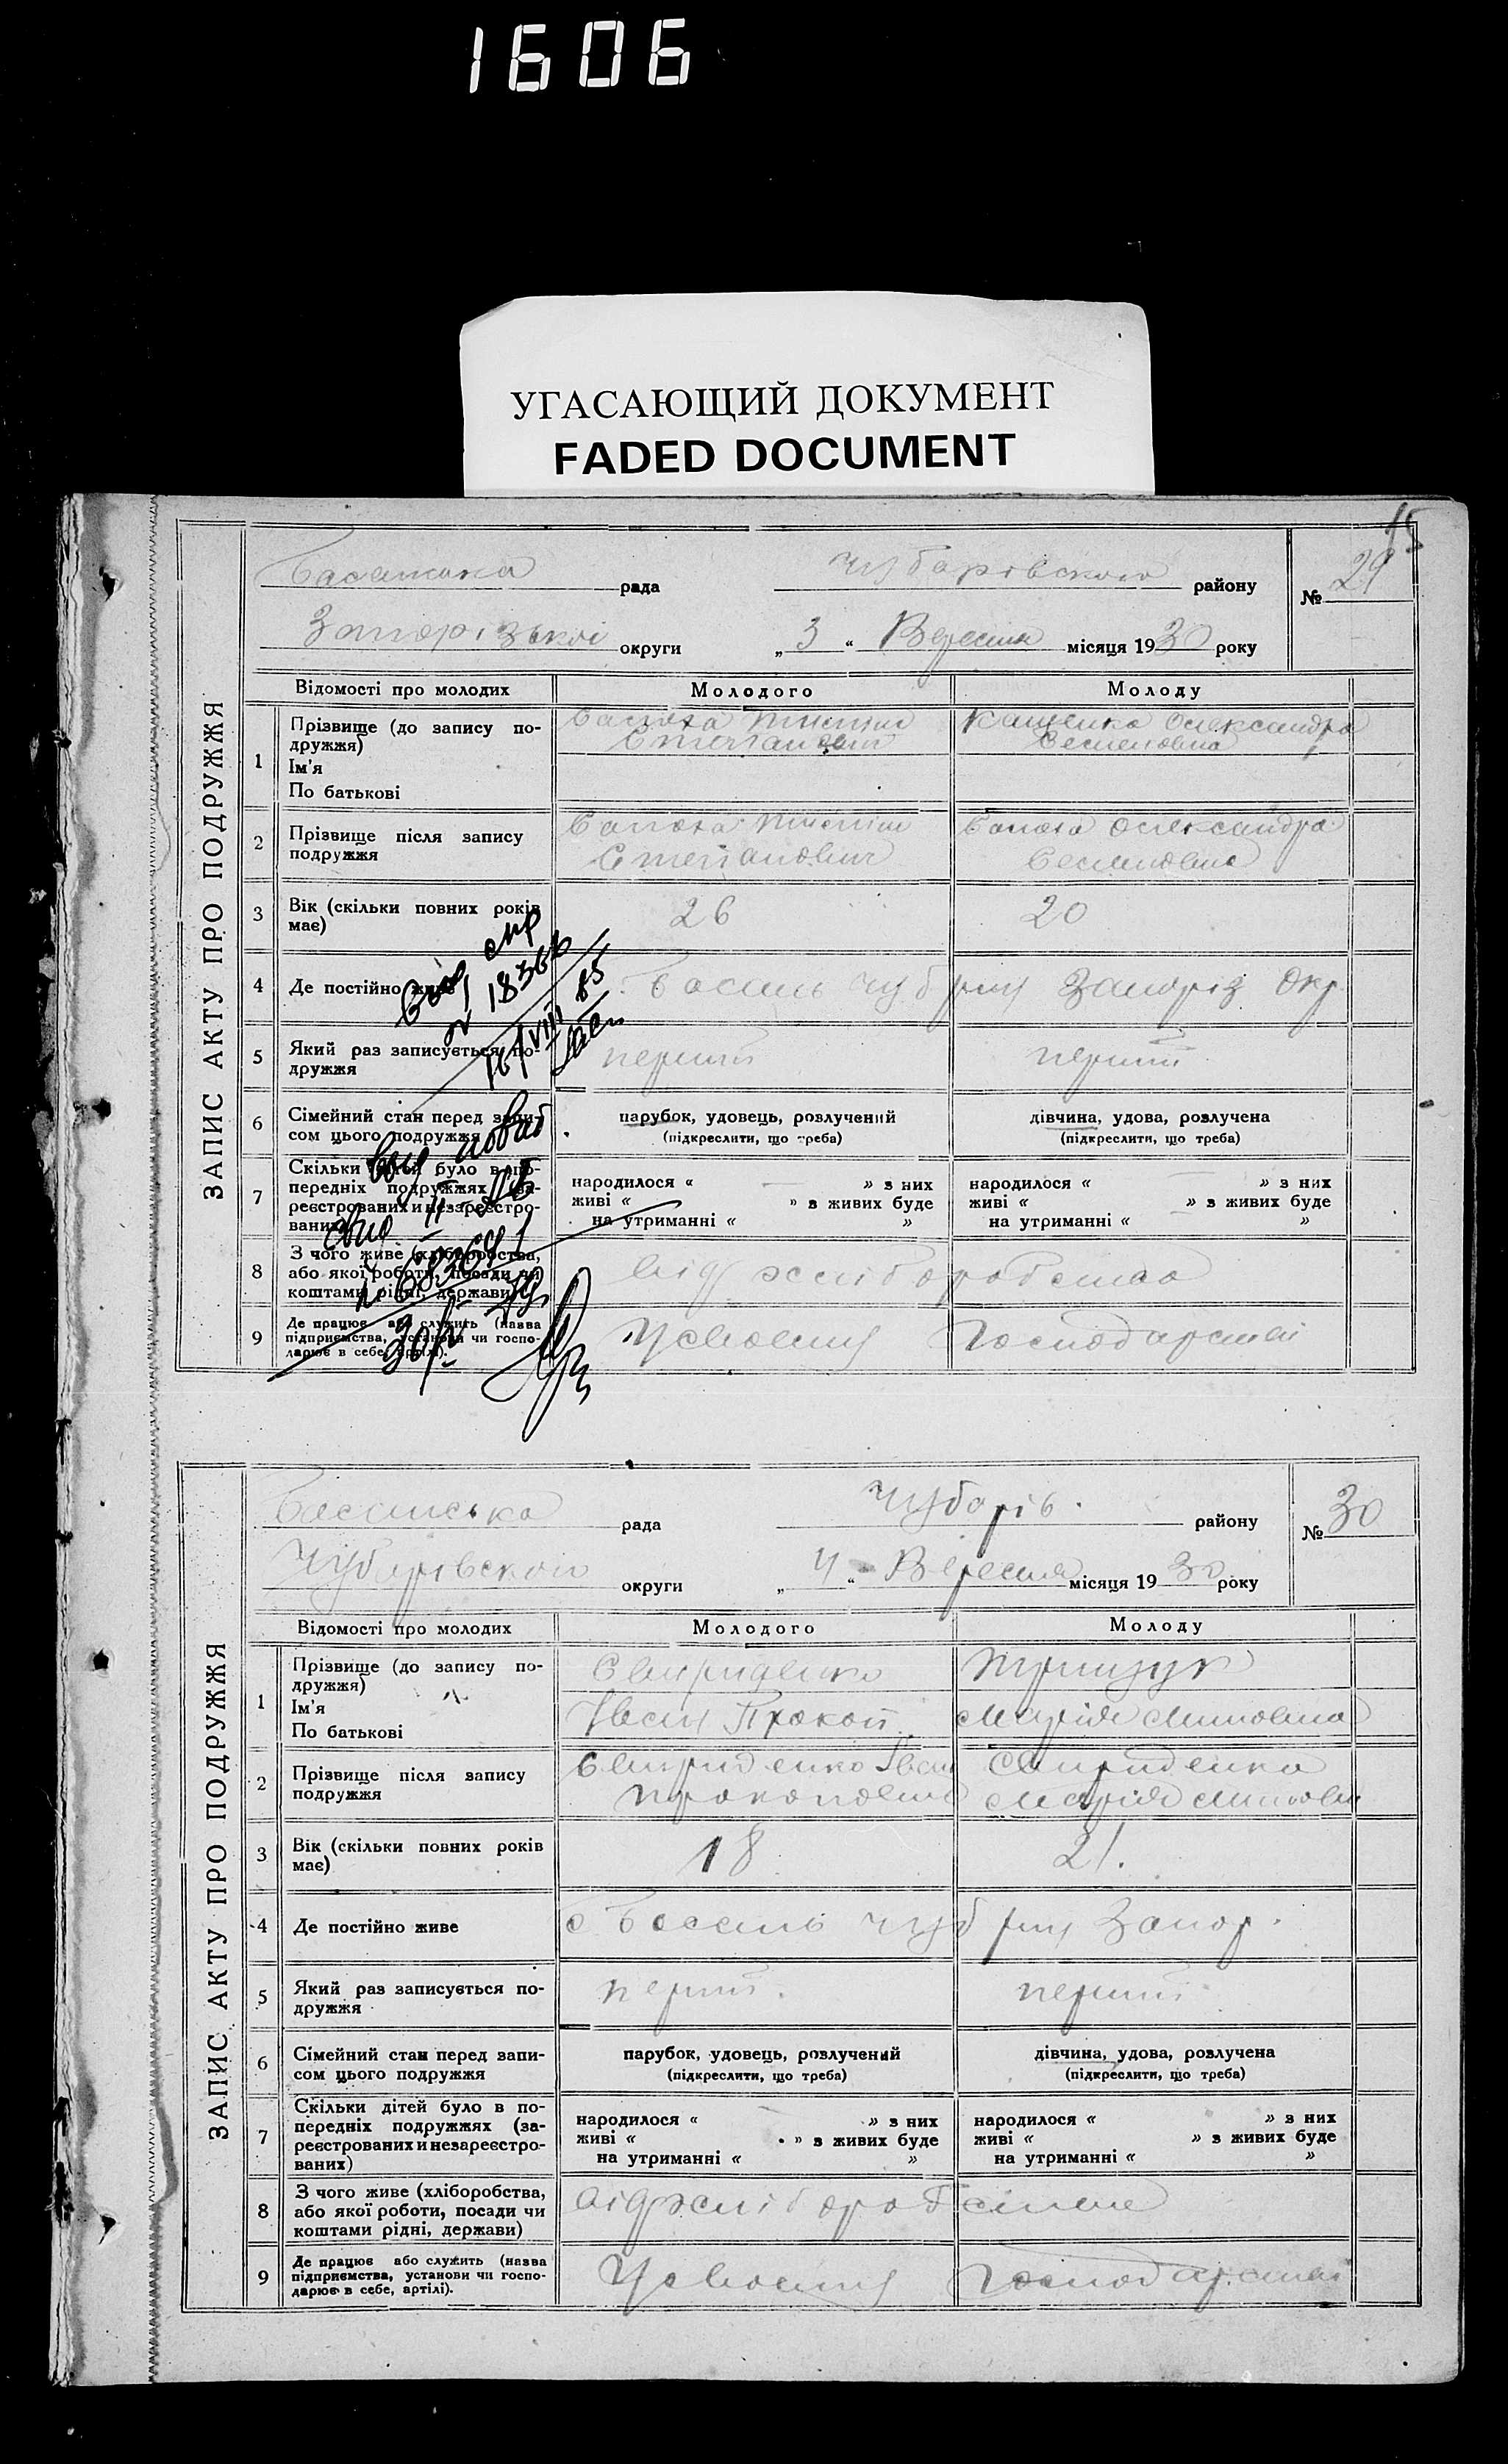 1606
УГАСАЮЩИЙ ДОКУМЕНТ
FADED DOCUMENT
15
рада Чубарівского району № 29
Запорізькоі округи „ 3 “ Вересня місяця 1930 року
ЗАПИС АКТУ ПРО ПОДРУЖЖЯ
Відомості про молодих Молодого Молоду
1 Прізвище (до запису по-
дружжя)
Ім'я
По батькові
Олександра
2 Прізвище після запису
подружжя
Олександра
3 Вік (скільки повних років
має) 26 20
4 Де постійно живе Басань Чуб рну Запоріз окр.
5 Який раз записується по-
дружжя перший перший
6 Сімейний стан перед запи-
сом цього подружжя
парубок, удовець, розлучений дівчина, удова, розлучена
(підкреслити, що треба) (підкреслити, що треба)
7 Скільки дітей було в по-
передніх подружжях (за-
реєстрованих и незареєстро-
ваних)
народилося « » з них народилося « » з них
живі « » з живих буде живі « » з живих буде
на утриманні « » на утриманні « »
8 З чого живе (хліборобства,
або якої роботи, посади чи
коштами рідні, держави)
від хліборобства
9 Де працює або служить (назва
підприємства, установи чи госпо-
дарює в себе, артілі).
У своєму господарстві
18366
Басанська рада Чубарів. району № 30
Чубарівского округи „ 4 “ Вересня місяця 1930 року
ЗАПИС АКТУ ПРО ПОДРУЖЖЯ
Відомості про молодих Молодого Молоду
1 Прізвище (до запису по-
дружжя)
Ім'я
По батькові
Свириденко
Іван Прокоп. Марія
2 Прізвище після запису
подружжя
Свириденко Іван Свириденко
Марія
3 Вік (скільки повних років
має) 18 21.
4 Де постійно живе с Басань Чуб рну Запор.
5 Який раз записується по-
дружжя перший. перший
6 Сімейний стан перед запи-
сом цього подружжя
парубок, удовець, розлучений дівчина, удова, розлучена
(підкреслити, що треба) (підкреслити, що треба)
7 Скільки дітей було в по-
передніх подружжях (за-
реєстрованих и незареєстро-
ваних)
народилося « » з них народилося « » з них
живі « » з живих буде живі « » з живих буде
на утриманні « » на утриманні « »
8 З чого живе (хліборобства,
або якої роботи, посади чи
коштами рідні, держави)
від хліборобства
9 Де працює або служить (назва
підприємства, установи чи госпо-
дарює в себе, артілі).
У своєму господарстві